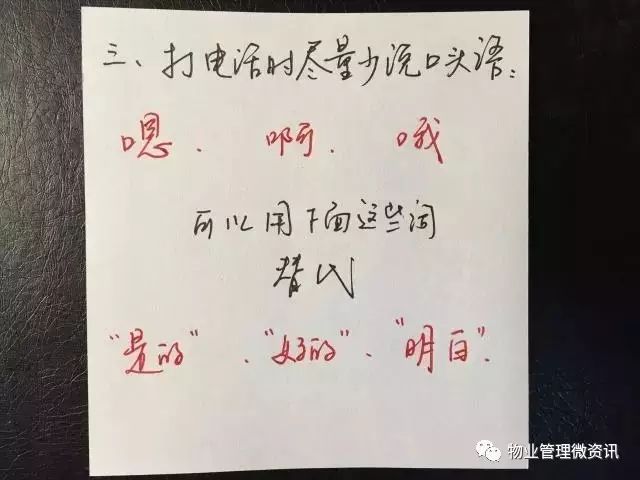 三、打电话时尽量少说口头语：
嗯、啊、哦
可以用下面这些词
替代
"是的"、"好的"、"明白".
物业管理微资讯